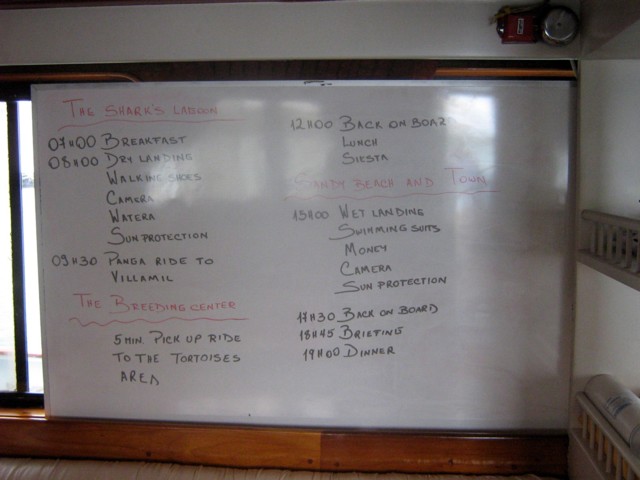 THE SHARK'S LAGOON
07H00 BREAKFAST
08H00 DRY LANDING
WALKING SHOES
CAMERA
WATERA
SUN PROTECTION
09H30 PANGA RIDE TO
VILLAMIL
THE BREEDING CENTER
5 MIN. PICK UP RIDE
TO THE TORTOISES
AREA
12H00 BACK ON BOARD
LUNCH
SIESTA
SANDY BEACH AND TOWN
15H00 WET LANDING
SWIMMING SUITS
MONEY
CAMERA
SUN PROTECTION
17H30 BACK ON BOARD
18H45 BRIEFING
19H00 DINNER